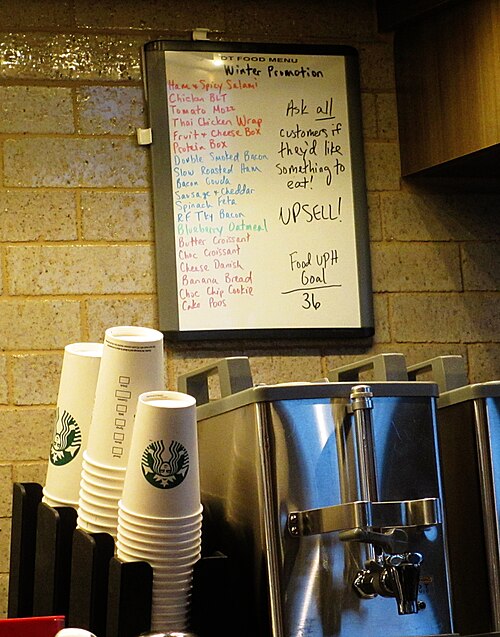 OT FOOD MENU
Winter Promotion
Ham + Spicy Salami
Chicken BLT
Tomato Mozz
Thai Chicken Wrap
Fruit + Cheese Box
Protein Box
Double Smoked Bacon
Slow Roasted Ham
Bacon Gouda
Sausage + Cheddar
Spinach Feta
RF Tky Bacon
Blueberry Oatmeal
Butter Croissant
Choc Croissant
Cheese Danish
Banana Bread
Choc Chip Cookie
Cake Pops
Ask all
customers if
they'd like
something to
eat!
UPSELL!
Food UPH
Goal
36